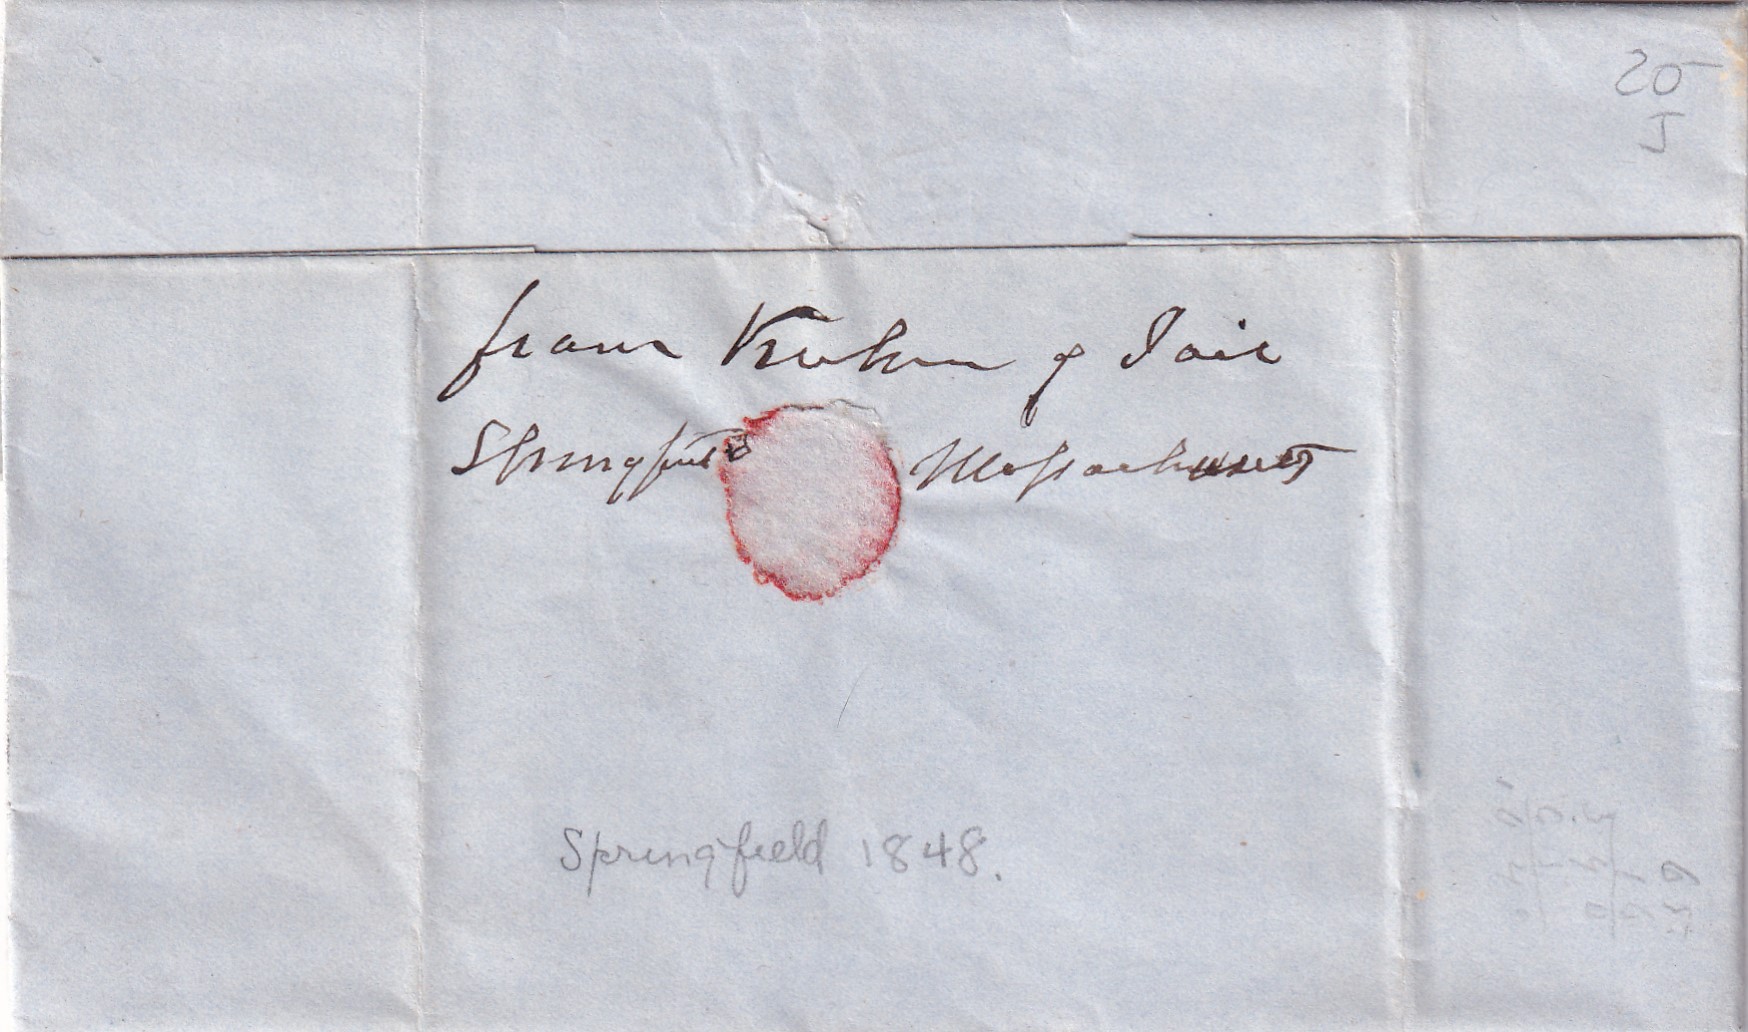 20
J
from Kuhn & Jail
Springfield Massachusetts
Springfield 1848.